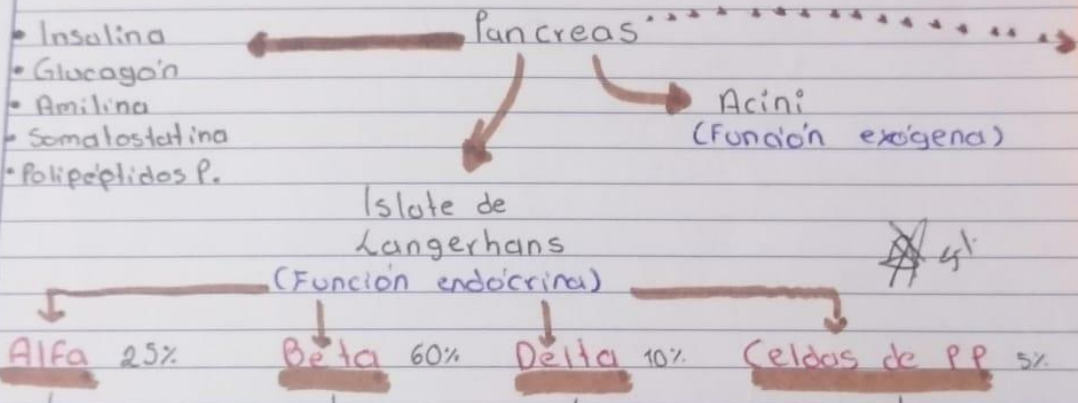 Pancreas
• Insulina
• Glucagón
• Amilina
• Somatostatina
• Polipéptidos P.
Acini
(Función exógena)
Islote de
Langerhans
(Función endócrina)
Alfa 25%
Beta 60%
Delta 10%
Celdas de PP 5%